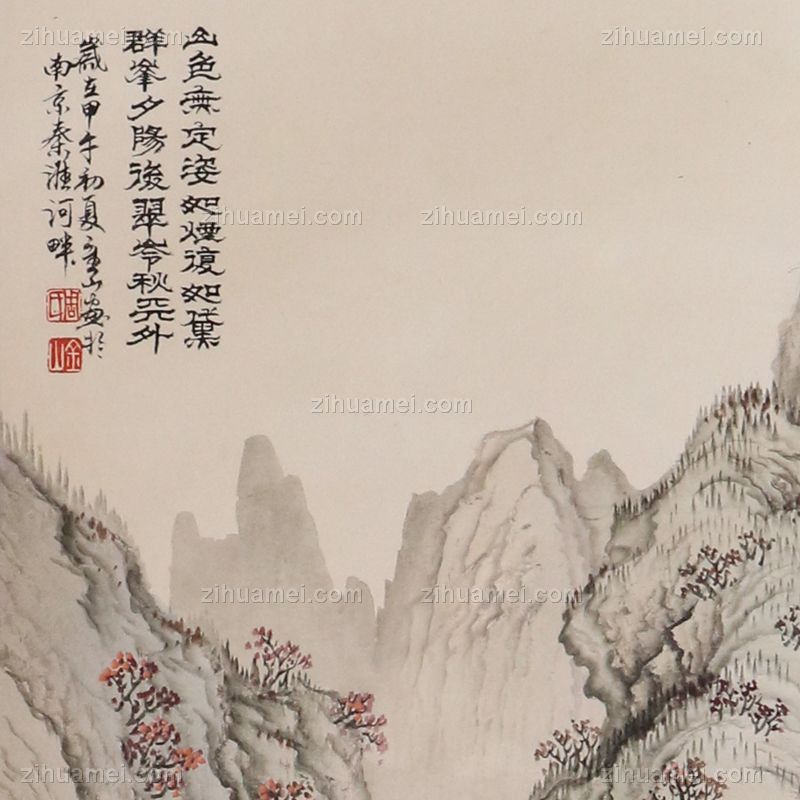 山色無定姿如煙復如黛
群峯夕陽後翠岺秋天外
歲在甲午初夏金山画於
南京秦淮河畔
周氏
金山
zihuamei.com
zihuamei.com
zihuamei.com
zihuamei.com
zihuamei.com
zihuamei.com
zihuamei.com
zihuamei.com
zihuamei.com